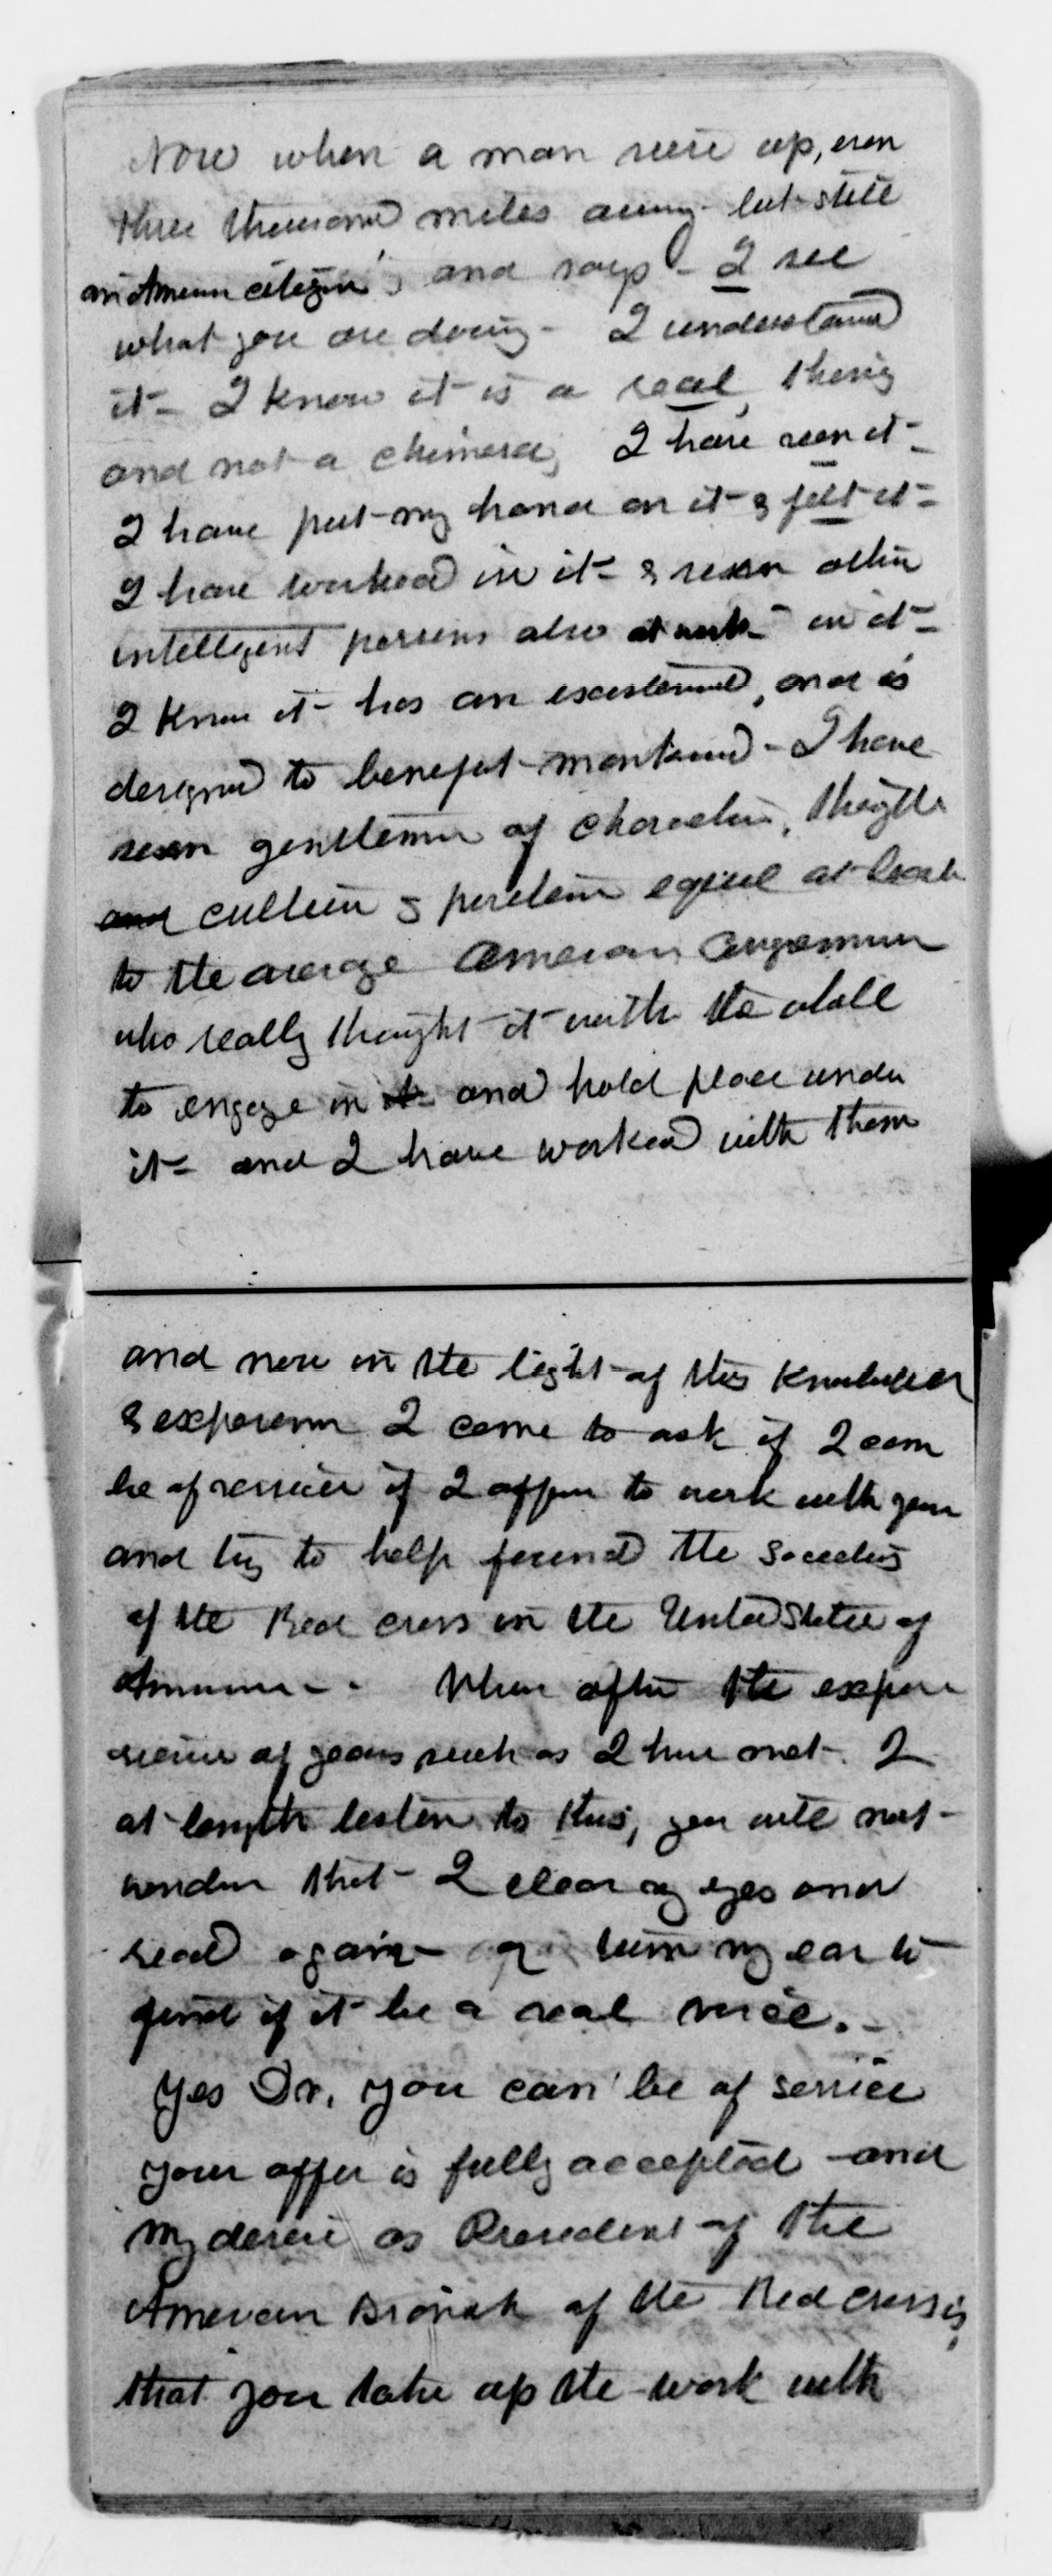 Now when a man rises up, even
three thousand miles away - but still
an American citizen, and says - I see
what you are doing - I understand
it - I know it is a real thing
and not a chimera, I have seen it -
I have put my hand on it & felt it -
I have worked in it - & seen other
intelligent persons also at work - in it -
I know it has an existence, and is
designed to benefit mankind - I have
seen gentlemen of character,
and culture & position equal at least
to the average American Congressman
who really thought it worth the while
to engage in it and hold place under
it - and I have worked with them
and now in the light of this Knowledge
& experience I come to ask if I can
be of service if I offer to work with you
and try to help found the Society
of the Red cross in the United States of
America - . When after the expe
rience of years such as I have met. I
at length listen to this, you will not
wonder that I clear my eyes and
read again - or turn my ear to
find if it be a real voice. -
Yes Dr. you can be of service
your offer is fully accepted - and
my desire as President of the
American Branch of the Red cross is,
that you take up the work with